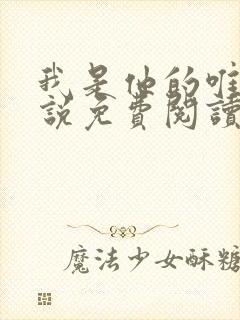 我是他的唯
說免費閱讀
魔法少女酥糖